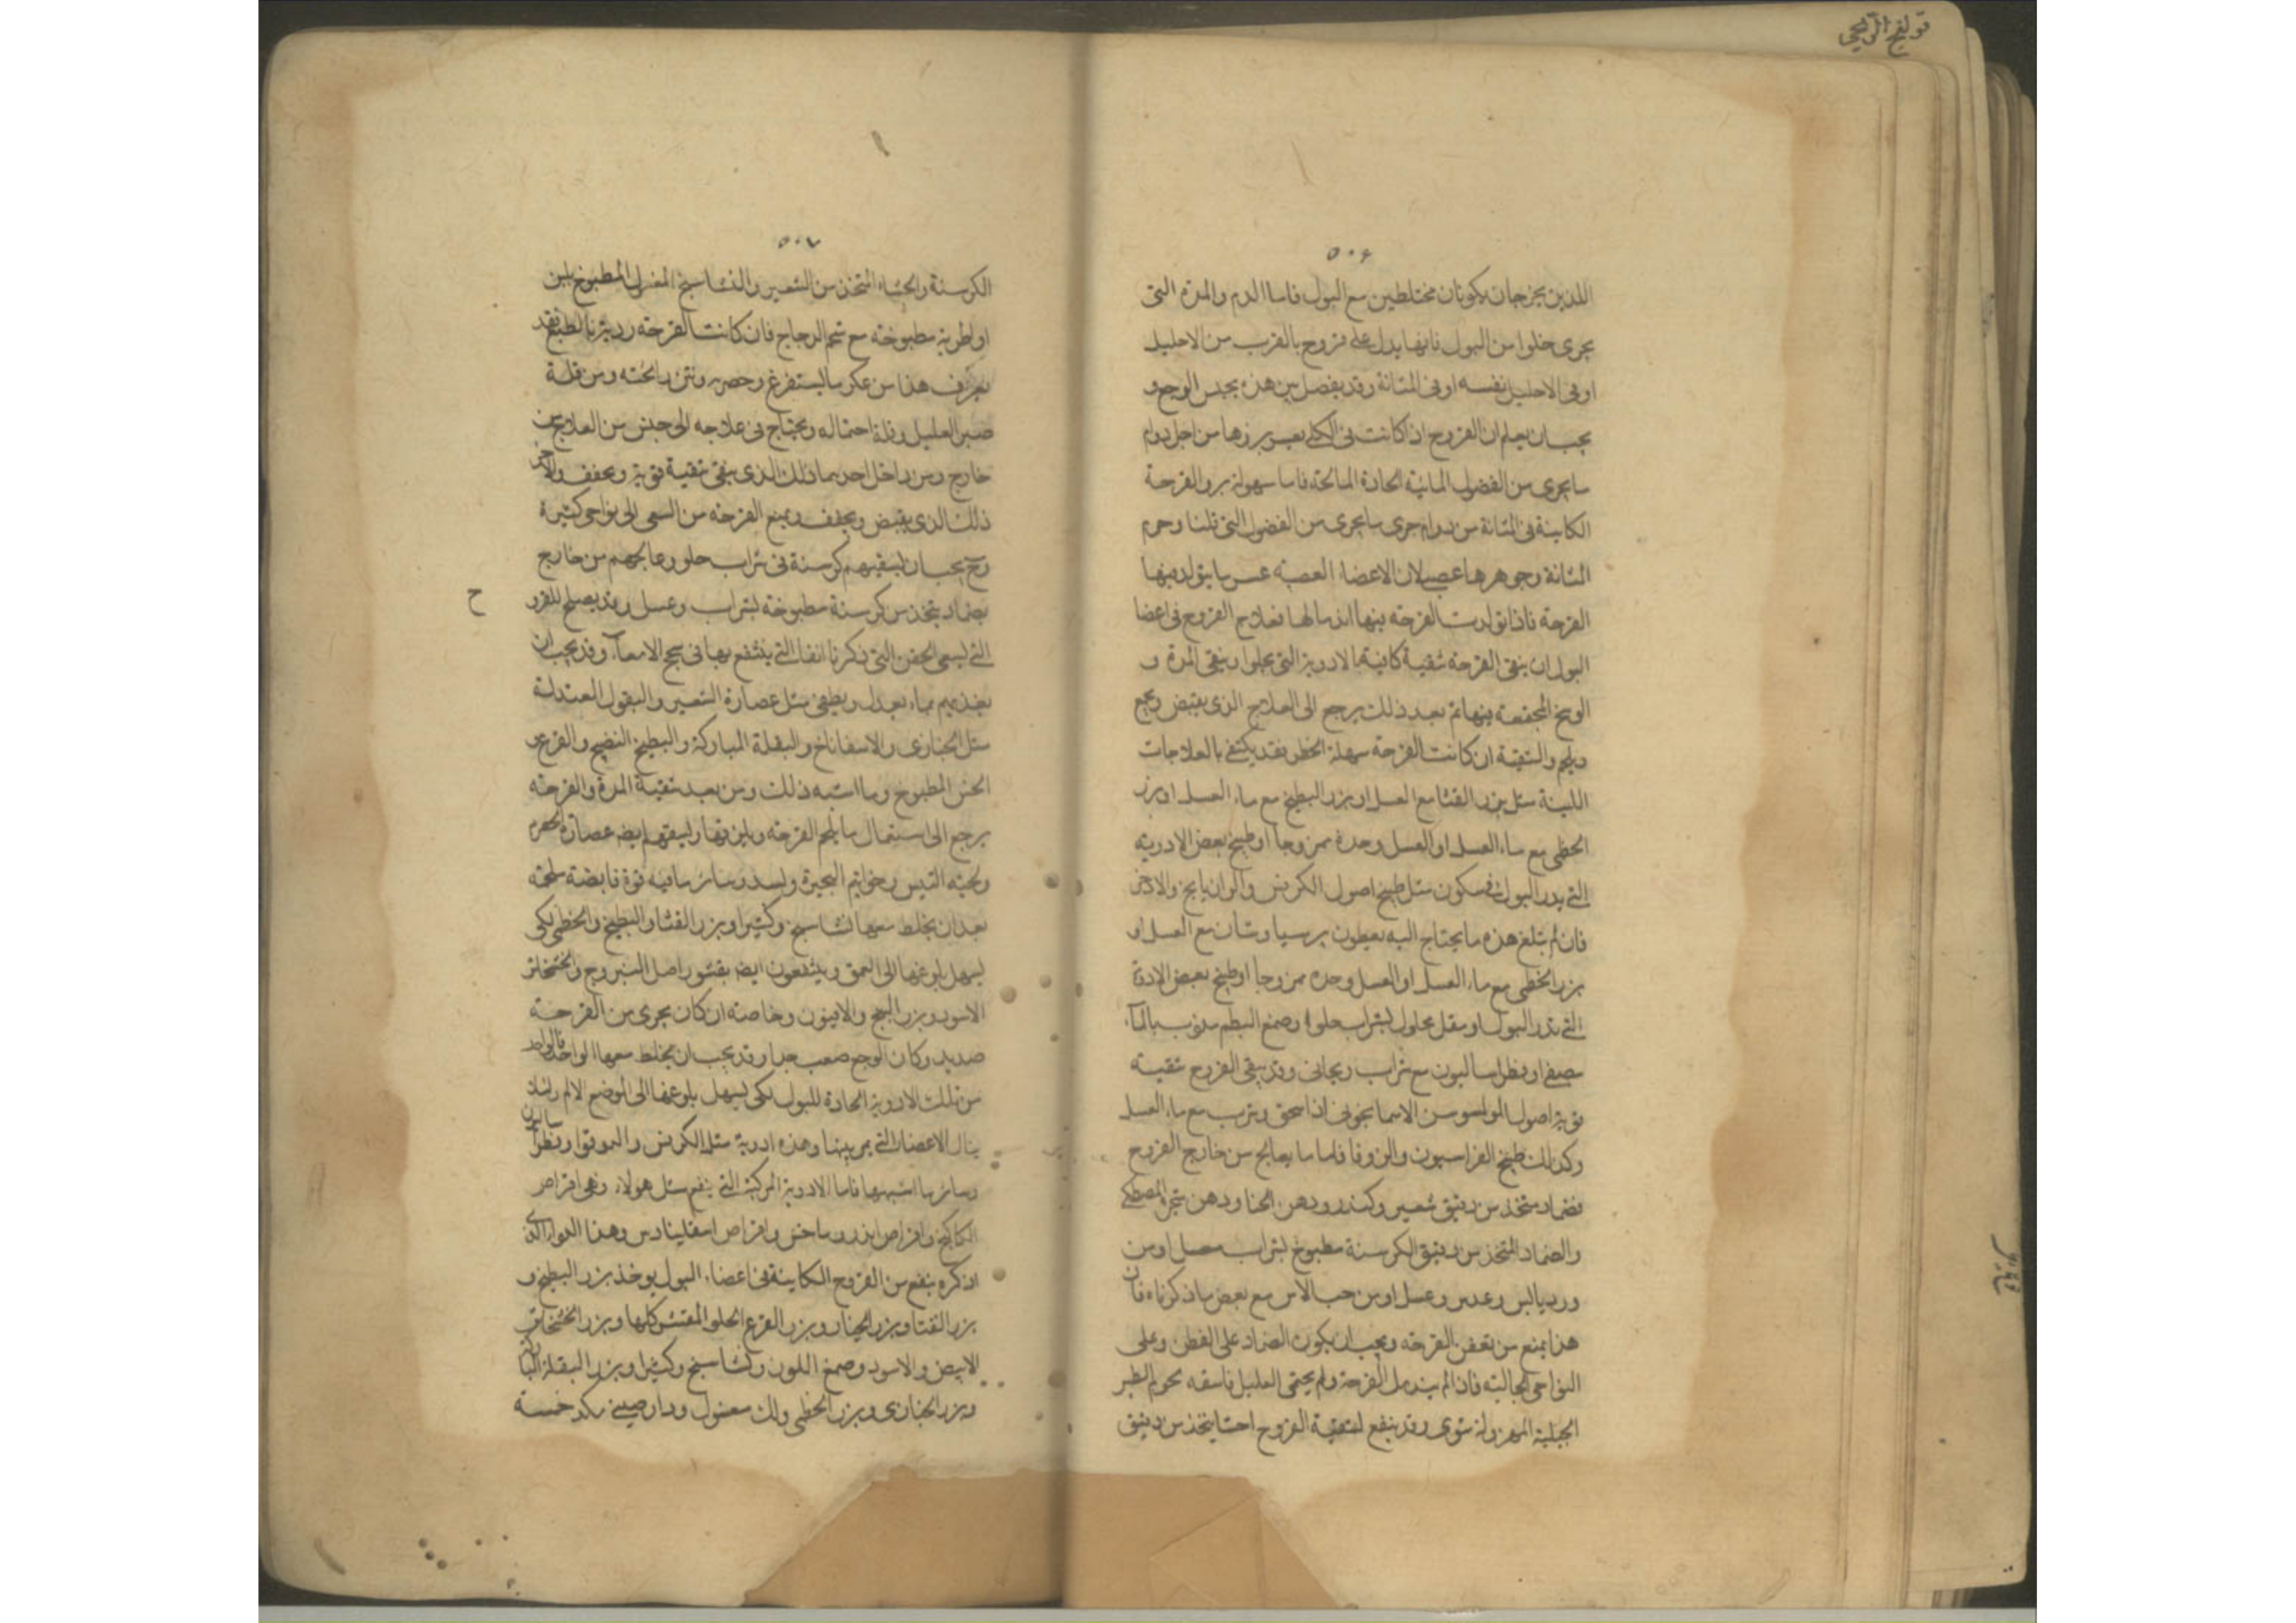 قولنج الريحي
٥٠۶
اللذين يخرجان يكونان مختلطين مع البول فاما الدم والمدة التى
يجرى خلوا من البول فانها يدل على قروح بالقرب من الاحليل
اوفى الاحليل نفسه اوفى المثانة وقد يفصل بين هذه بجنس الوجع و
يجب ان يعلم ان القروح اذا كانت فى الكلى يعسر برؤها من اجل دوام
ما يجرى من الفضول المائية الحادة المالحة فاما سهولة برو القرحة
الكاينة فى المثانة من دوام جرى ما يجرى من الفضول التى قلنا وجرم
المثانة وجوهرها عصبى لان الاعضاء العصبية عسر ما يتولد فيها
القرحة فاذا تولدت القرحة فيها اندمالها فعلاج القروح فى اعضا
البول ان ينقى القرحة تنقية كافية بالادوية التى يجلوا وينقى المدة و
الوسخ المجتمعة فيها ثم بعد ذلك يرجع الى العلاج الذى يقبض ويجمع
ويلحم والتنقية ان كانت القرحة سهلة الخطر فقد يكتفى بالعلاجات
اللينة مثل بزر القثا مع العسل او بزر البطيخ مع ماء العسل او بزر
الخطمى مع ماء العسل او العسل وحده ممزوجا او طبيخ بعض الادوية
التى يدر البول فى سكون مثل طبيخ اصول الكرفس والرازيانج والاذخر
فان لم تبلغ هذه ما يحتاج اليه يعطون برسياوشان مع العسل او
بزر الخطمى مع ماء العسل او العسل وحده ممزوجا او طبيخ بعض الادوية
التى تدر البول او مقل محلول بشراب حلو او صمغ البطم مذوب بالماء
مصفى او فطراساليون مع شراب ريحانى وقد ينقى القروح تنقية
قوية اصول السوسن الاسمانجونى اذا سحق وشرب مع ماء العسل
وكذلك طبيخ الفراسيون والزوفا فاما ما يعالج من خارج القروح
فضماد متخذ من دقيق شعير وكندر ودهن الحنا ودهن شجر المصطكى
والضماد المتخذ من دقيق الكرسنة مطبوخ بشراب معسل او من
ورد يابس وعدس وعسل او من حب الاس مع بعض ما ذكرناه فان
هذا يمنع من تعفن القرحة ويجب ان يكون الضماد على القطن وعلى
النواحى الحالبية فان لم يندمل القرحة ولم يحتمى العليل فاسقه لحوم الطير
الجبلية المهزولة شوى وقد ينفع لتنقية القروح احشا يتخذ من دقيق
٥٠٧
الكرسنة والحشاء المتخذ من الشعير والنشاستج المغسول المطبوخ بلبن
او اطرية مطبوخة مع شحم الدجاج فان كانت القرحة ردية بالطبع فقد
يعرف هذا من عكر ما يستفرغ وحصره ونتن رائحته ومن قلة
صبر العليل وقلة احتماله ويحتاج فى علاجه الى جنس من العلاج من
خارج ومن داخل احدهما ذلك الذى ينقى تنقية قوية ويجفف والاخر
ذلك الذى يقبض ويجفف ويمنع القرحة من السعى الى نواحى كثيرة
وح يجب ان يسقيهم كرسنة فى شراب حلو وعالجهم من خارج
بضماد يتخذ من كرسنة مطبوخة بشراب وعسل وقد يصلح للقرو
ح
التى يسعى الحقن التى ذكرنا انفا التى ينتفع بها فى سحج الامعاء وقد يجب ان
يغذيهم بماء يعدل ويطفى مثل عصارة الشعير والبقول المعتدلة
مثل الخبازى والاسفاناخ والبقلة المباركة والبطيخ النضيج والقرع و
الخس المطبوخ وما اشبه ذلك ومن بعد تنقية المدة والقرحة
يرجع الى استعمال ما يلحم القرحة ويلزقها ويسقيهم ايضا عصارة الحصرم
ولحية التيس وخواتيم البحيرة وبسد وسائر ما فيه قوة قابضة ملحمة
بعد ان يخلط معها نشاستج وكثيرا وبزر القثا والبطيخ والخطمى لكى
يسهل بلوغها الى العمق وينتفعون ايضا بقشور اصل اليبروج والخشخاش
الاسود وبزر البنج والافيون وخاصة ان كان يجرى من القرحة
صديد وكان الوجع صعب جدا وقد يجب ان يخلط معها الواحد فالواحد
من تلك الادوية الحادة للبول لكى يسهل بلوغها الى الموضع الالم ولئلا
ينال الاعضاء التى يمر بها وهذه ادوية مثل الكرفس والموقوا وفطراساليون
وسائر ما اشبهها فاما الادوية المركبة التى ينفع مثل هولاء وهى اقراص
الكاكنج واقراص اندروماخس واقراص اسقلينادس وهذا الدواء الذى
اذكره ينفع من القروح الكاينة فى اعضاء البول يوخذ بزر البطيخ و
بزر القثا وبزر الخيار وبزر القرع الحلو المقشر كلها وبزر الخشخاش
الابيض والاسود وصمغ اللوز ونشاستج وكثيرا وبزر البقلة المباركة
وبزر الخبازى وبزر الخطمى ولك مغسول ودارصينى مكد خمسة